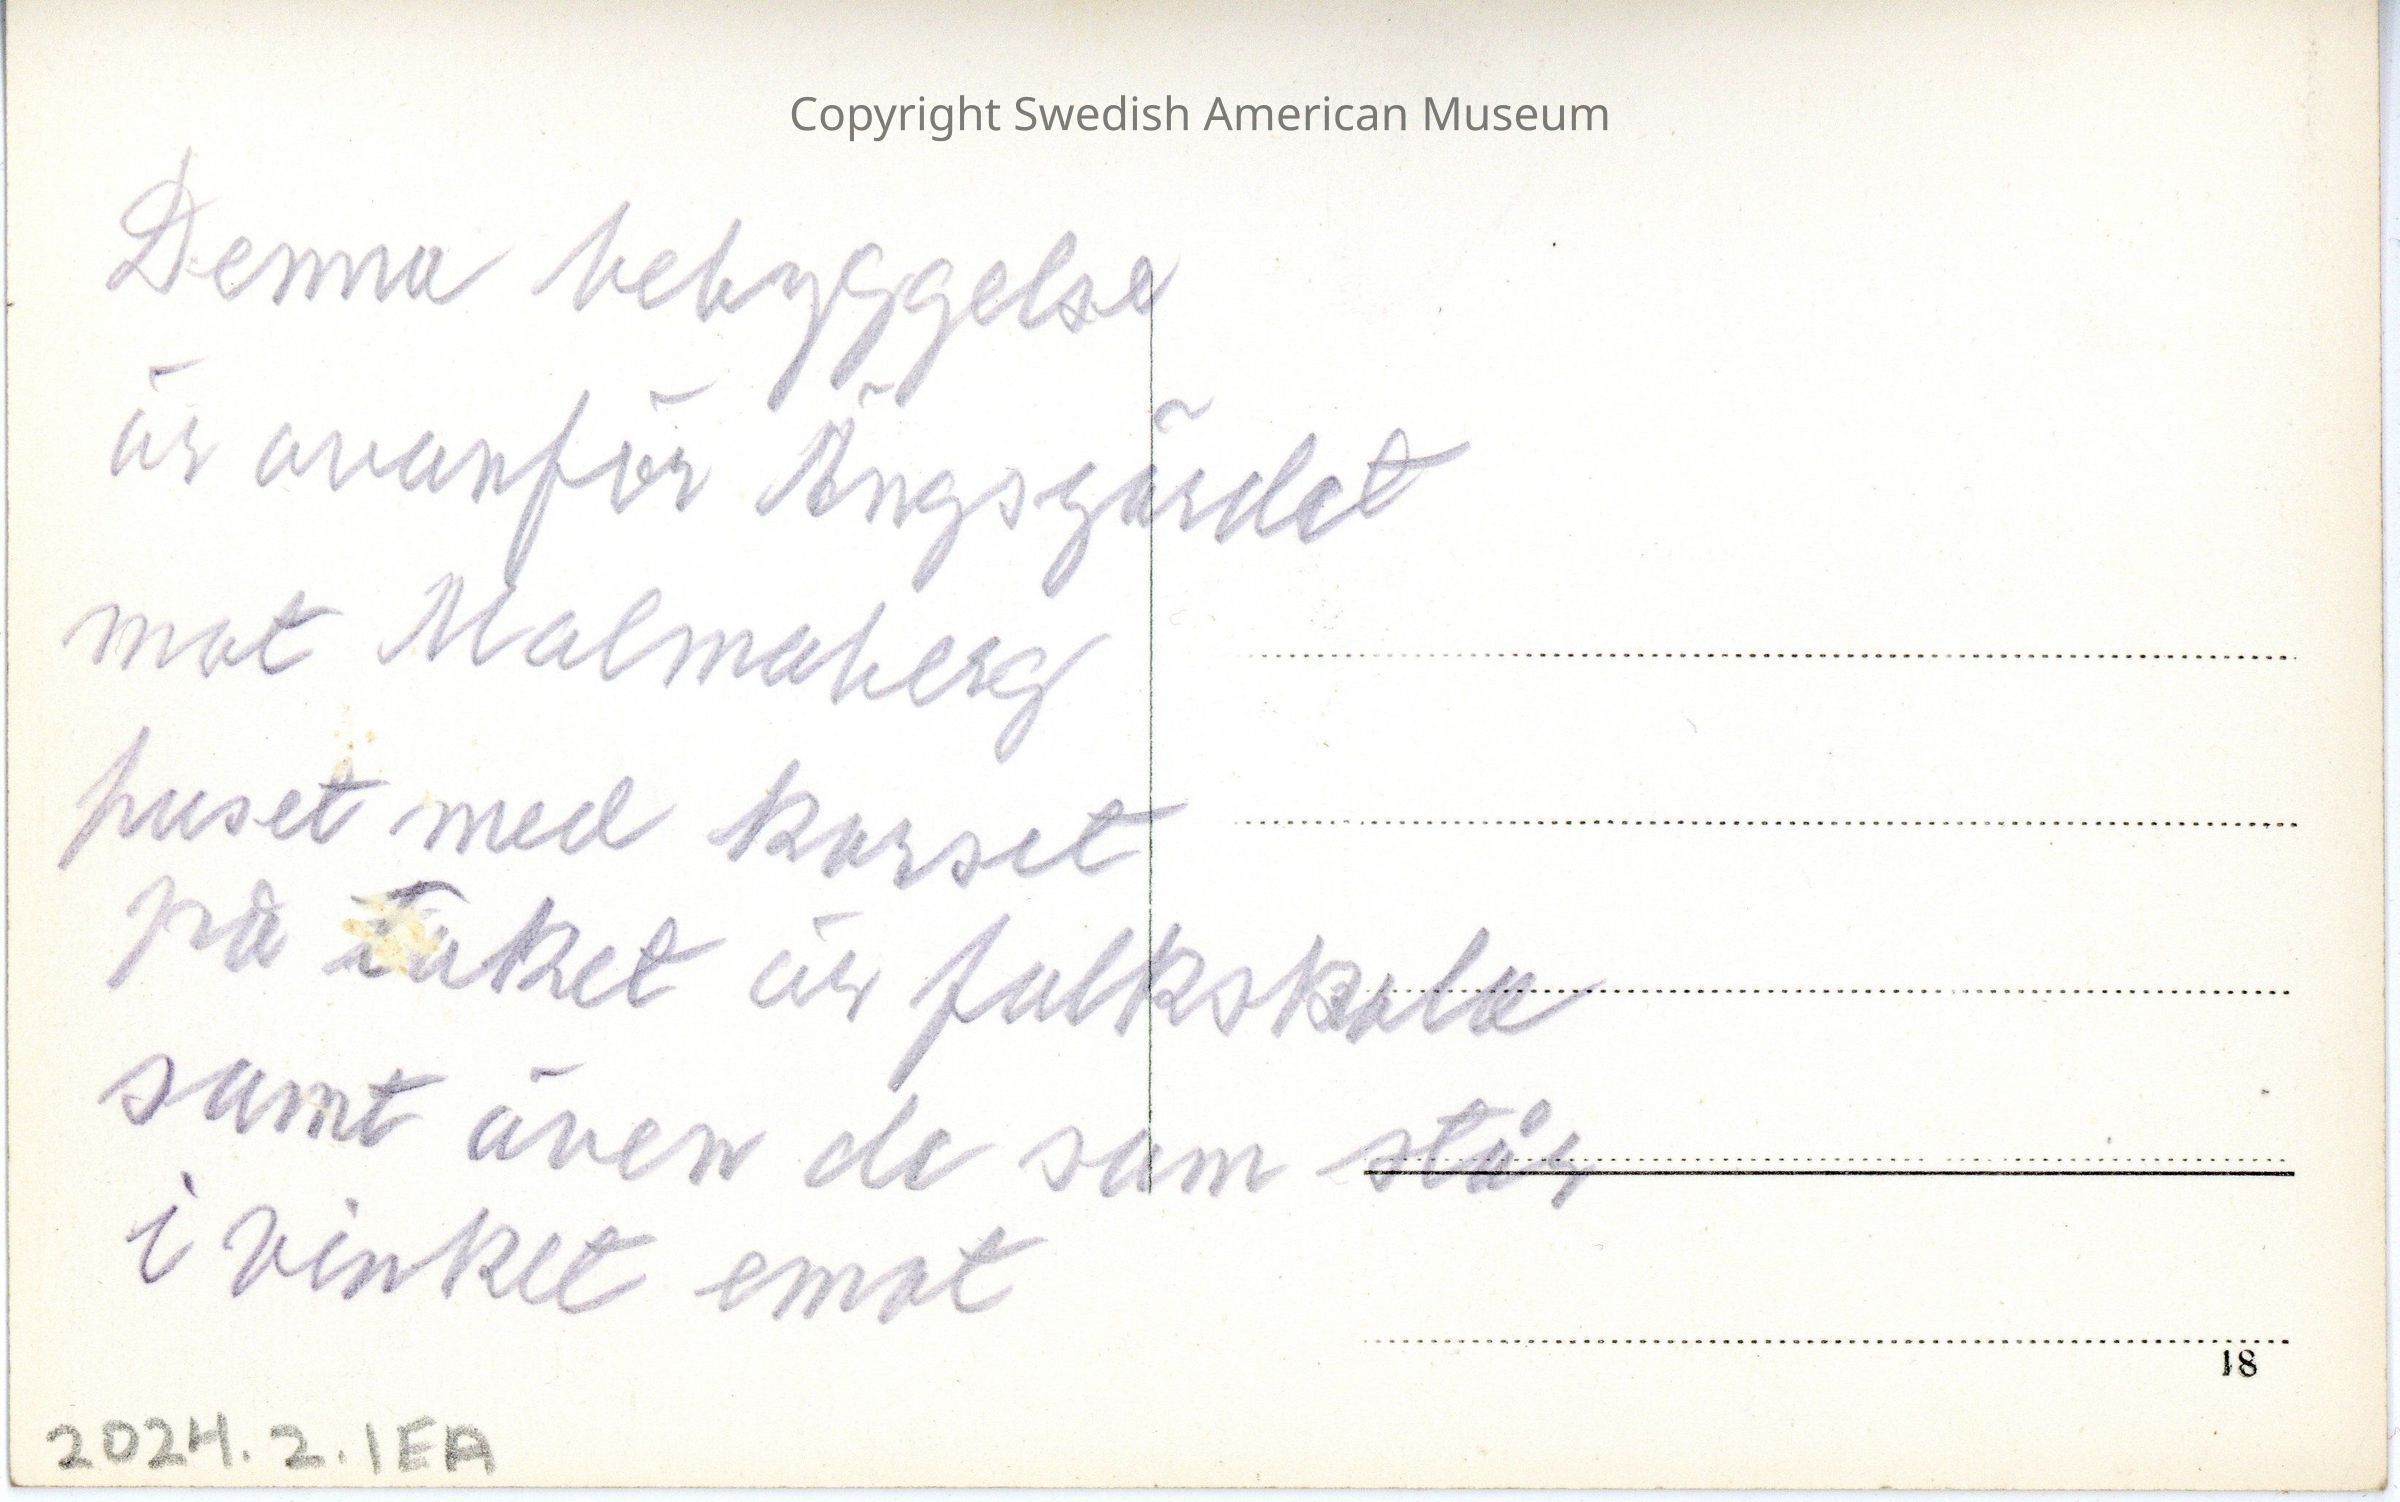 Copyright Swedish American Museum
Denna bebyggelse
är ovanför Ängsgärdet
mot Malmaberg
huset med korset
på taket är folkskola
samt även de som står
i vinket emot
18
2024.2.1EA